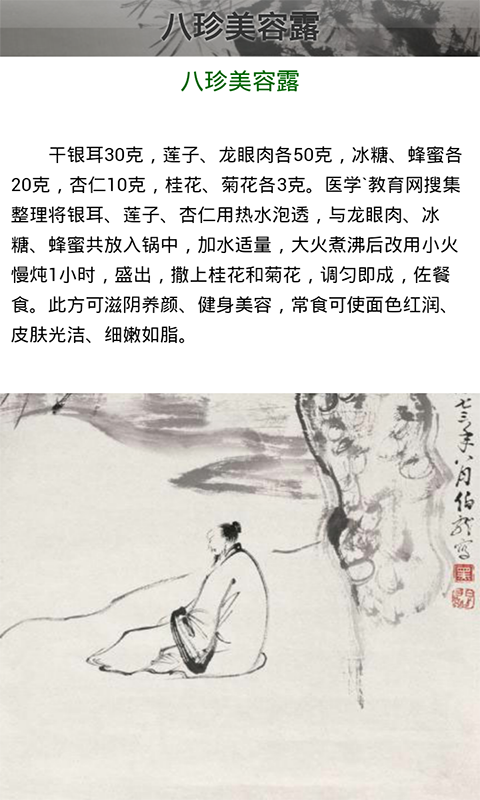 八珍美容露
八珍美容露
干银耳30克，莲子、龙眼肉各50克，冰糖、蜂蜜各
20克，杏仁10克，桂花、菊花各3克。医学`教育网搜集
整理将银耳、莲子、杏仁用热水泡透，与龙眼肉、冰
糖、蜂蜜共放入锅中，加水适量，大火煮沸后改用小火
慢炖1小时，盛出，撒上桂花和菊花，调匀即成，佐餐
食。此方可滋阴养颜、健身美容，常食可使面色红润、
皮肤光洁、细嫩如脂。
七三年八月伯龙写